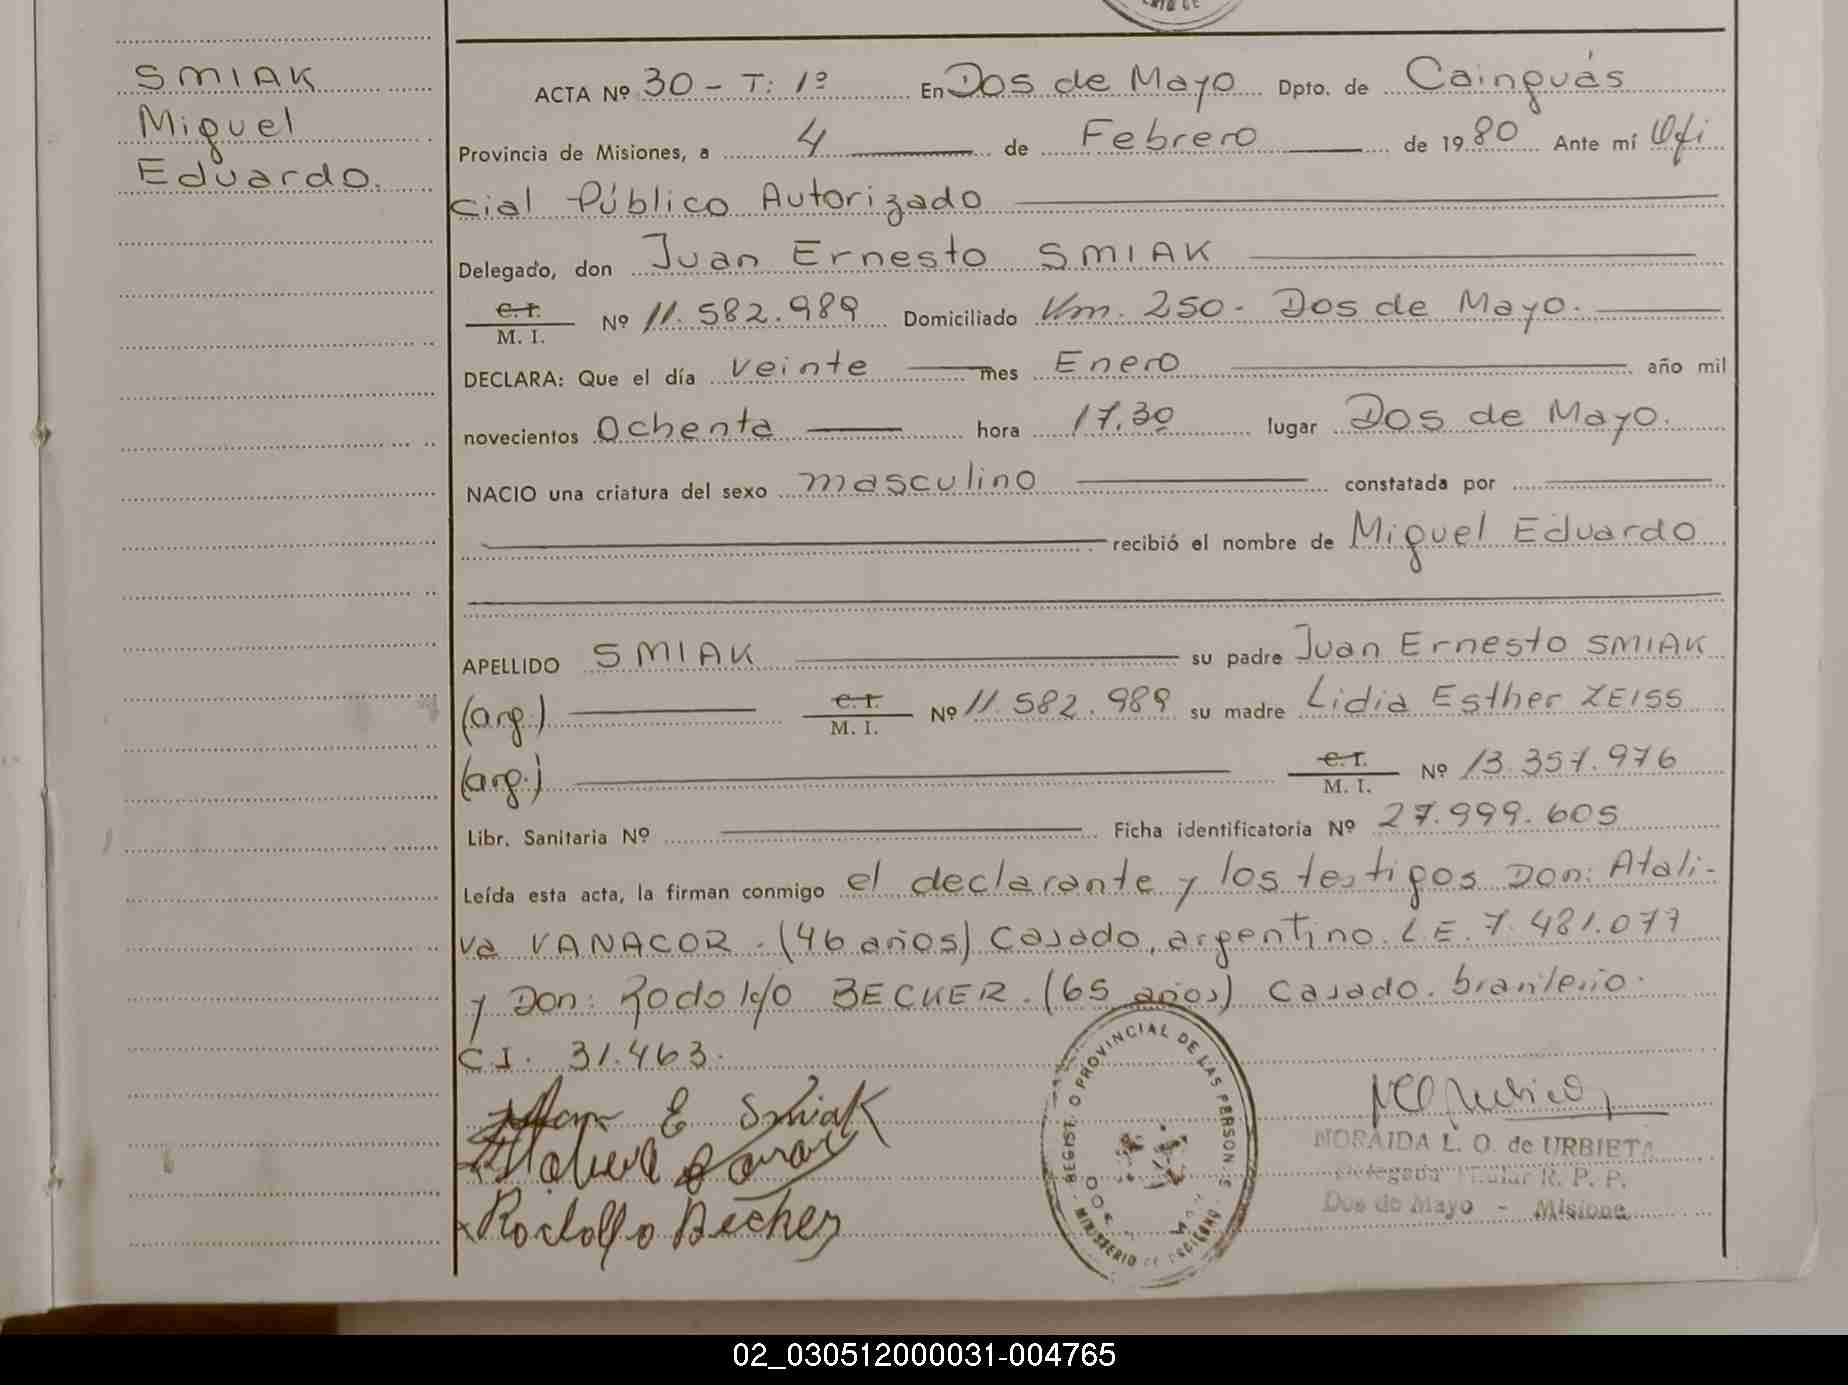 SMIAK
Miguel
Eduardo.
ACTA Nº 30 - T: 1º En Dos de Mayo Dpto. de Cainguás
Provincia de Misiones, a 4 de Febrero de 1980 Ante mí Ofi
cial Público Autorizado
Delegado, don Juan Ernesto SMIAK
C. I.
M. I. Nº 11.582.989 Domiciliado Km. 250 - Dos de Mayo.
DECLARA: Que el día veinte mes Enero año mil
novecientos Ochenta hora 17,30 lugar Dos de Mayo.
NACIO una criatura del sexo masculino constatada por
recibió el nombre de Miguel Eduardo
APELLIDO SMIAK su padre Juan Ernesto SMIAK
(arg.) C. I. M. I. Nº 11.582.989 su madre Lidia Esther ZEISS
(arg.) C. I. M. I. Nº 13.357.976
Libr. Sanitaria Nº Ficha identificatoria Nº 27.999.605
Leída esta acta, la firman conmigo el declarante y los testigos Don: Atali-
va VANACOR. (46 años) Casado, argentino. L E. 7.481.077
y Don: Rodolfo BECKER. (65 años) Casado. brasilerio.
C.I. 31.463.
E Smiak
Rodolfo Becker
REGIST O PROVINCIAL DE LAS PERSON S
MINISTERIO DE
NORAIDA L. O. de URBIETA
Delegada Titular R. P. P.
Dos de Mayo - Misiones
02_030512000031-004765